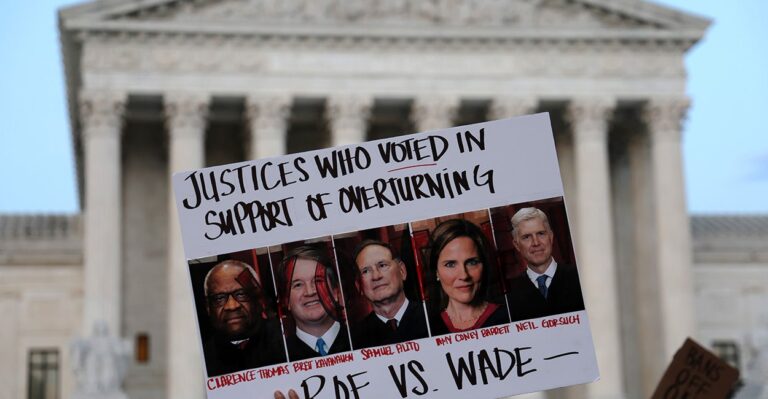 JUSTICES WHO VOTED IN
SUPPORT OF OVERTURNING
CLARENCE THOMAS BRET KAVANAUGH SAMUEL ALITO AMY CONEY BARRETT NEIL GORSUCH
ROE VS. WADE —
BANS
OFF